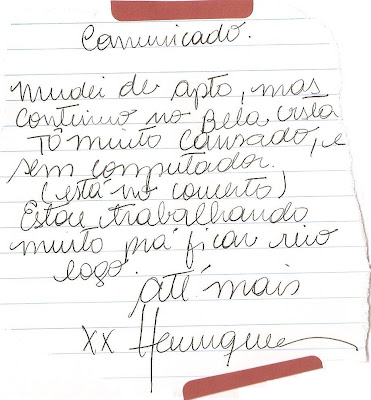 Comunicado.
Mudei de apto, mas
continuo no Bela vista
Tô muito cansado, e
sem computador.
(está no conserto)
Estou trabalhando
muito prá ficar rico
logo.
até mais
xx Henrique